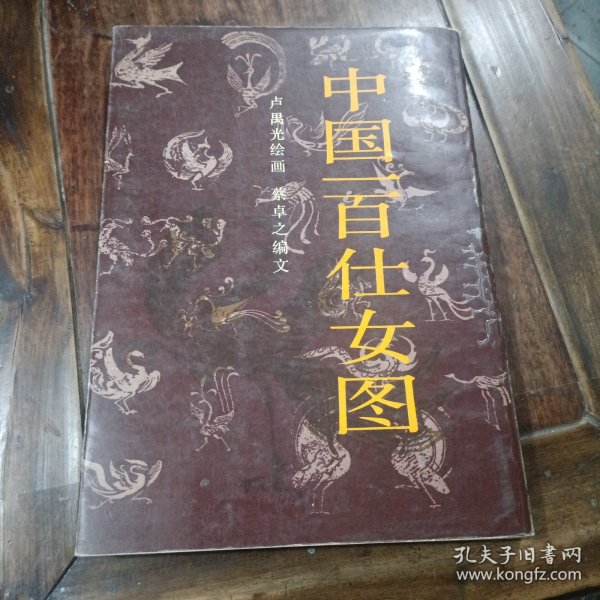 中国一百仕女图
卢禺光绘画 蔡卓之编文
孔夫子旧书网
www.kongfz.com